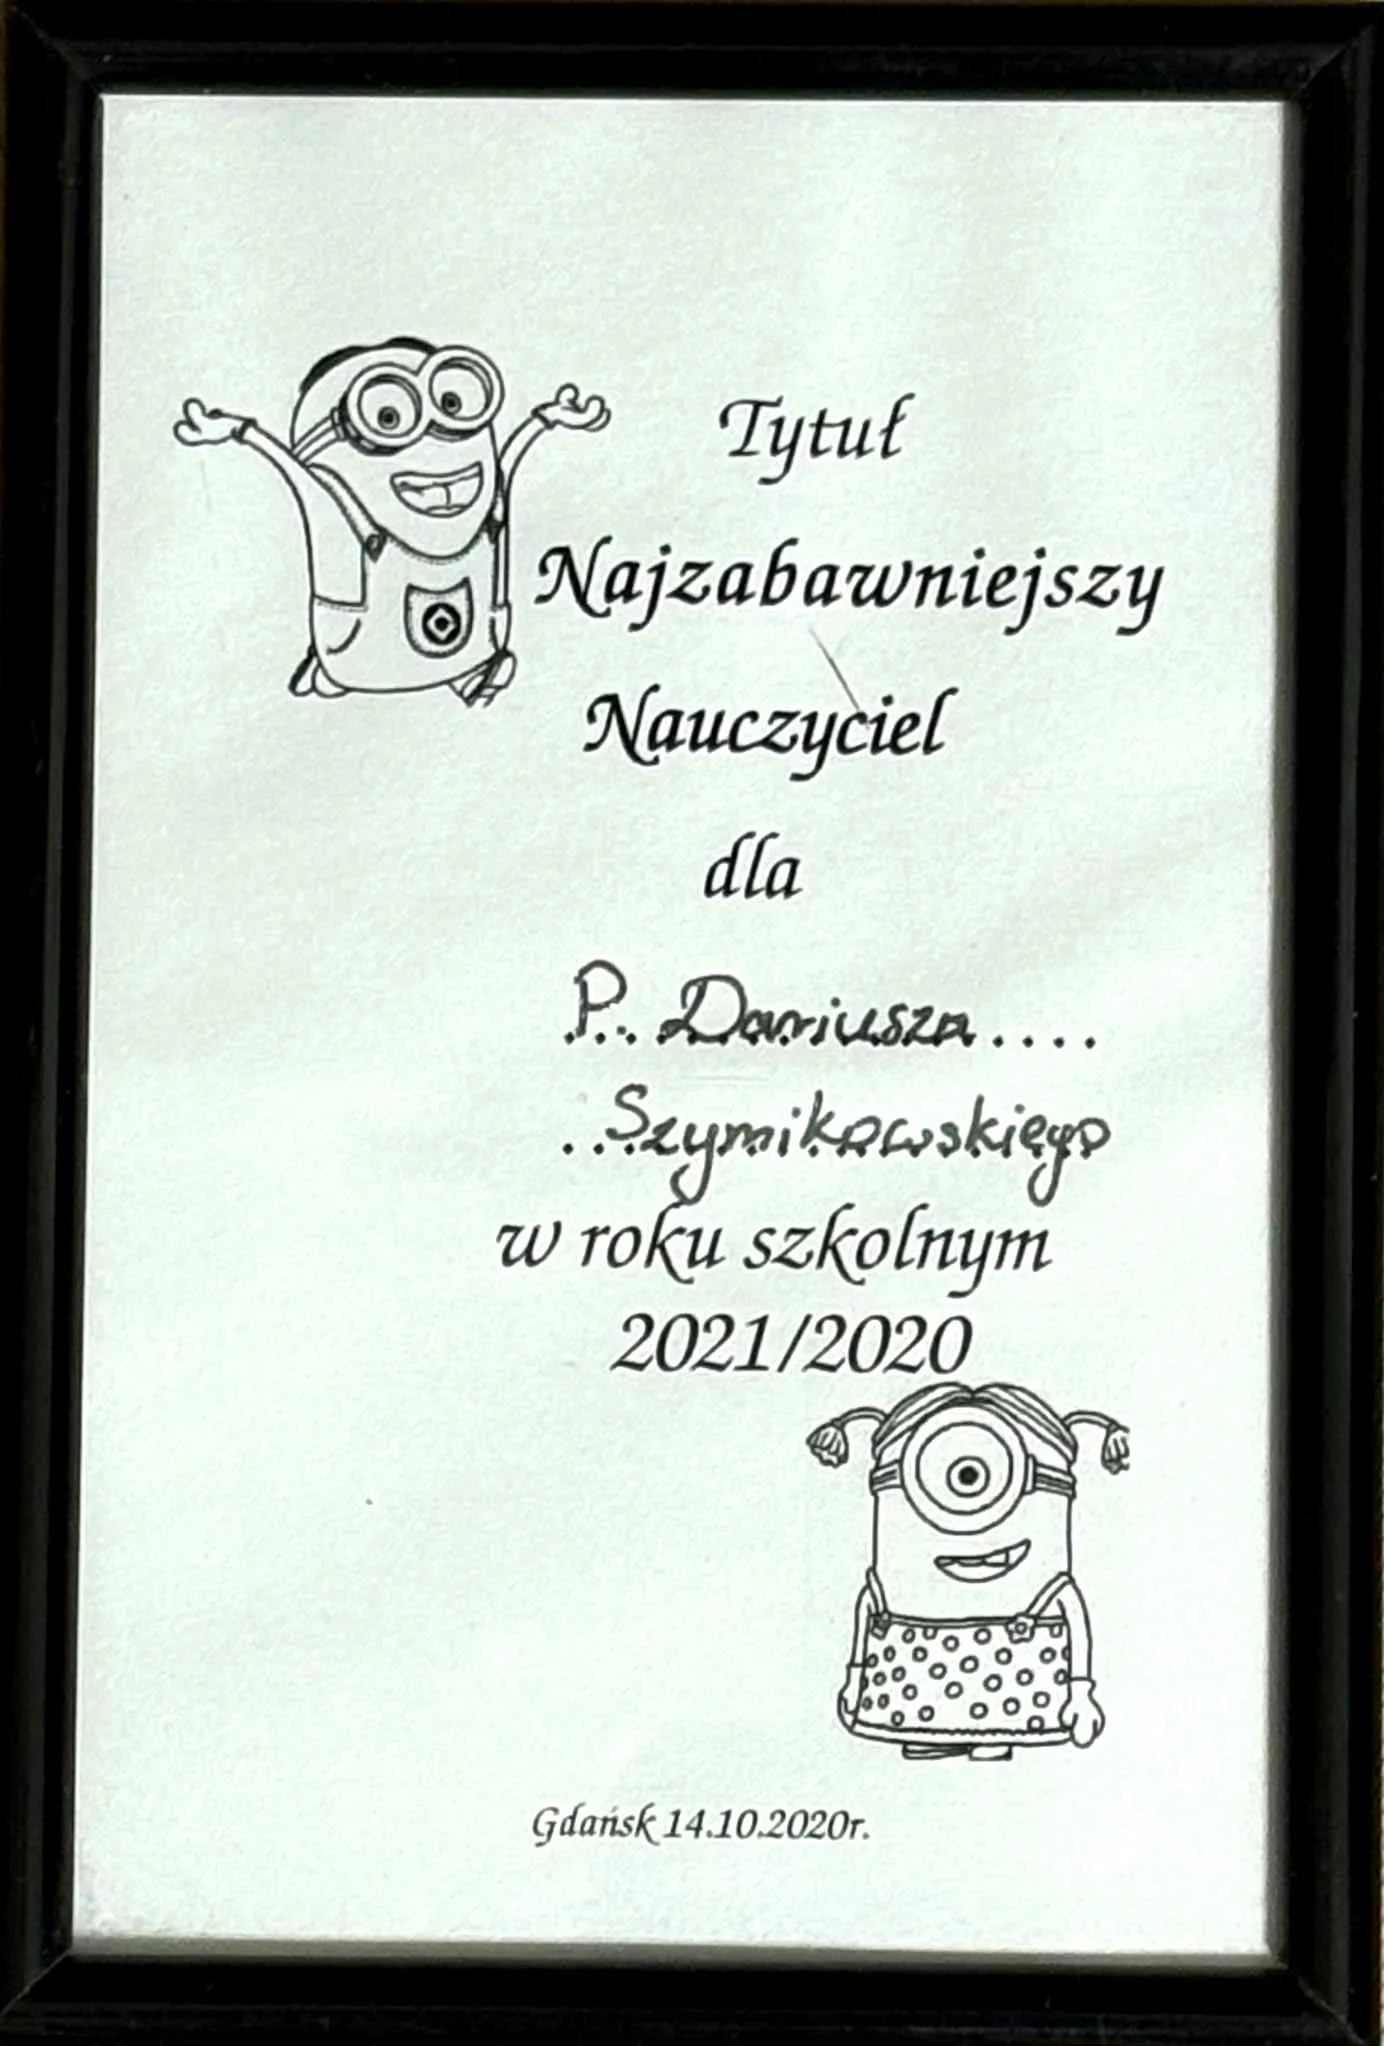 Tytuł
Najzabawniejszy
Nauczyciel
dla
P. Dariusza....
..Szymikowskiego
w roku szkolnym
2021/2020
Gdańsk 14.10.2020r.